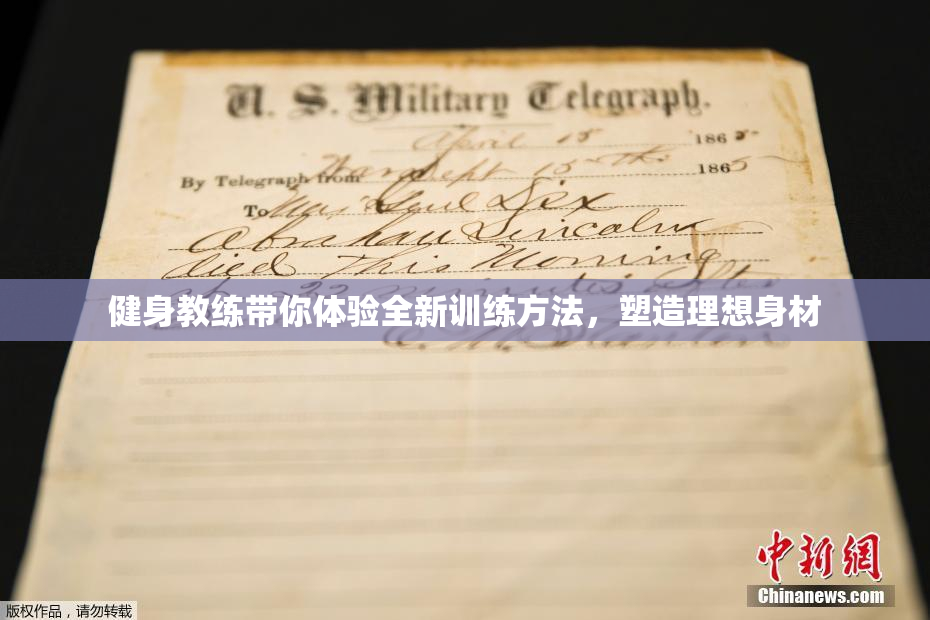 U. S. Military Telegraph.
April 15 1865
By Telegraph from War Dept 15th 1865
To Maj Genl Dix
Abraham Lincoln
died This Morning
22 minutes after
健身教练带你体验全新训练方法，塑造理想身材
E. M. Stanton
中新网
Chinanews.com
版权作品，请勿转载